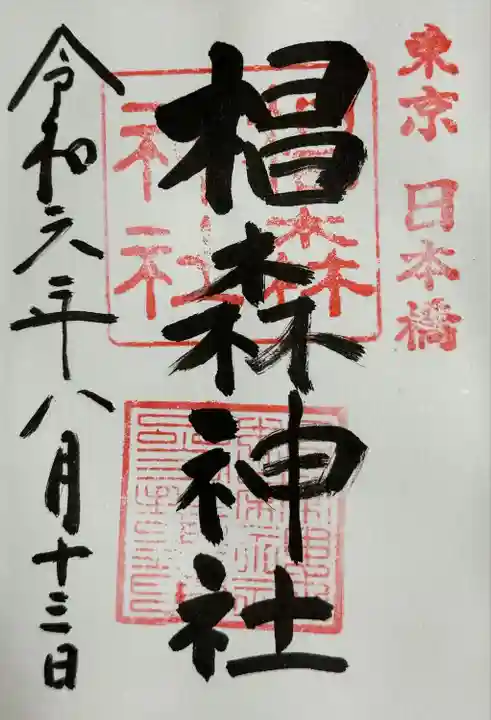 東京 日本橋
椙森神社
令和六年八月十三日
椙森
神社